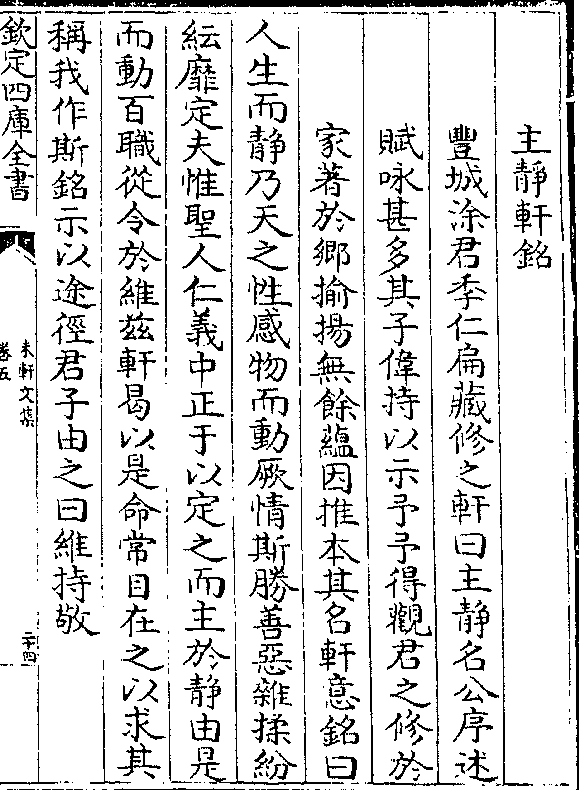 主靜軒銘
豐城涂君季仁扁藏修之軒曰主靜名公序述
賦咏甚多其子偉持以示予予得觀君之修於
家著於鄉揄揚無餘藴因推本其名軒意銘曰
人生而静乃天之性感物而動厥情斯勝善惡雜揉紛
紜靡定夫惟聖人仁義中正于以定之而主於静由是
而動百職從令於維兹軒曷以是命常目在之以求其
稱我作斯銘示以途徑君子由之曰維持敬
欽定四庫全書
未軒文集
卷五
二十四